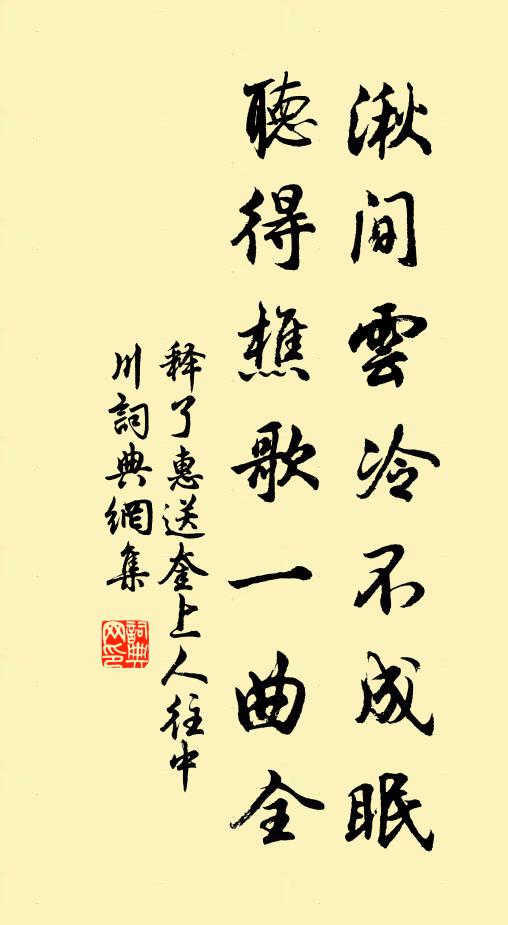 湫間雲冷不成眠
聽得樵歌一曲全
释了惠送奎上人往中
川詞典網集
詞典
网印